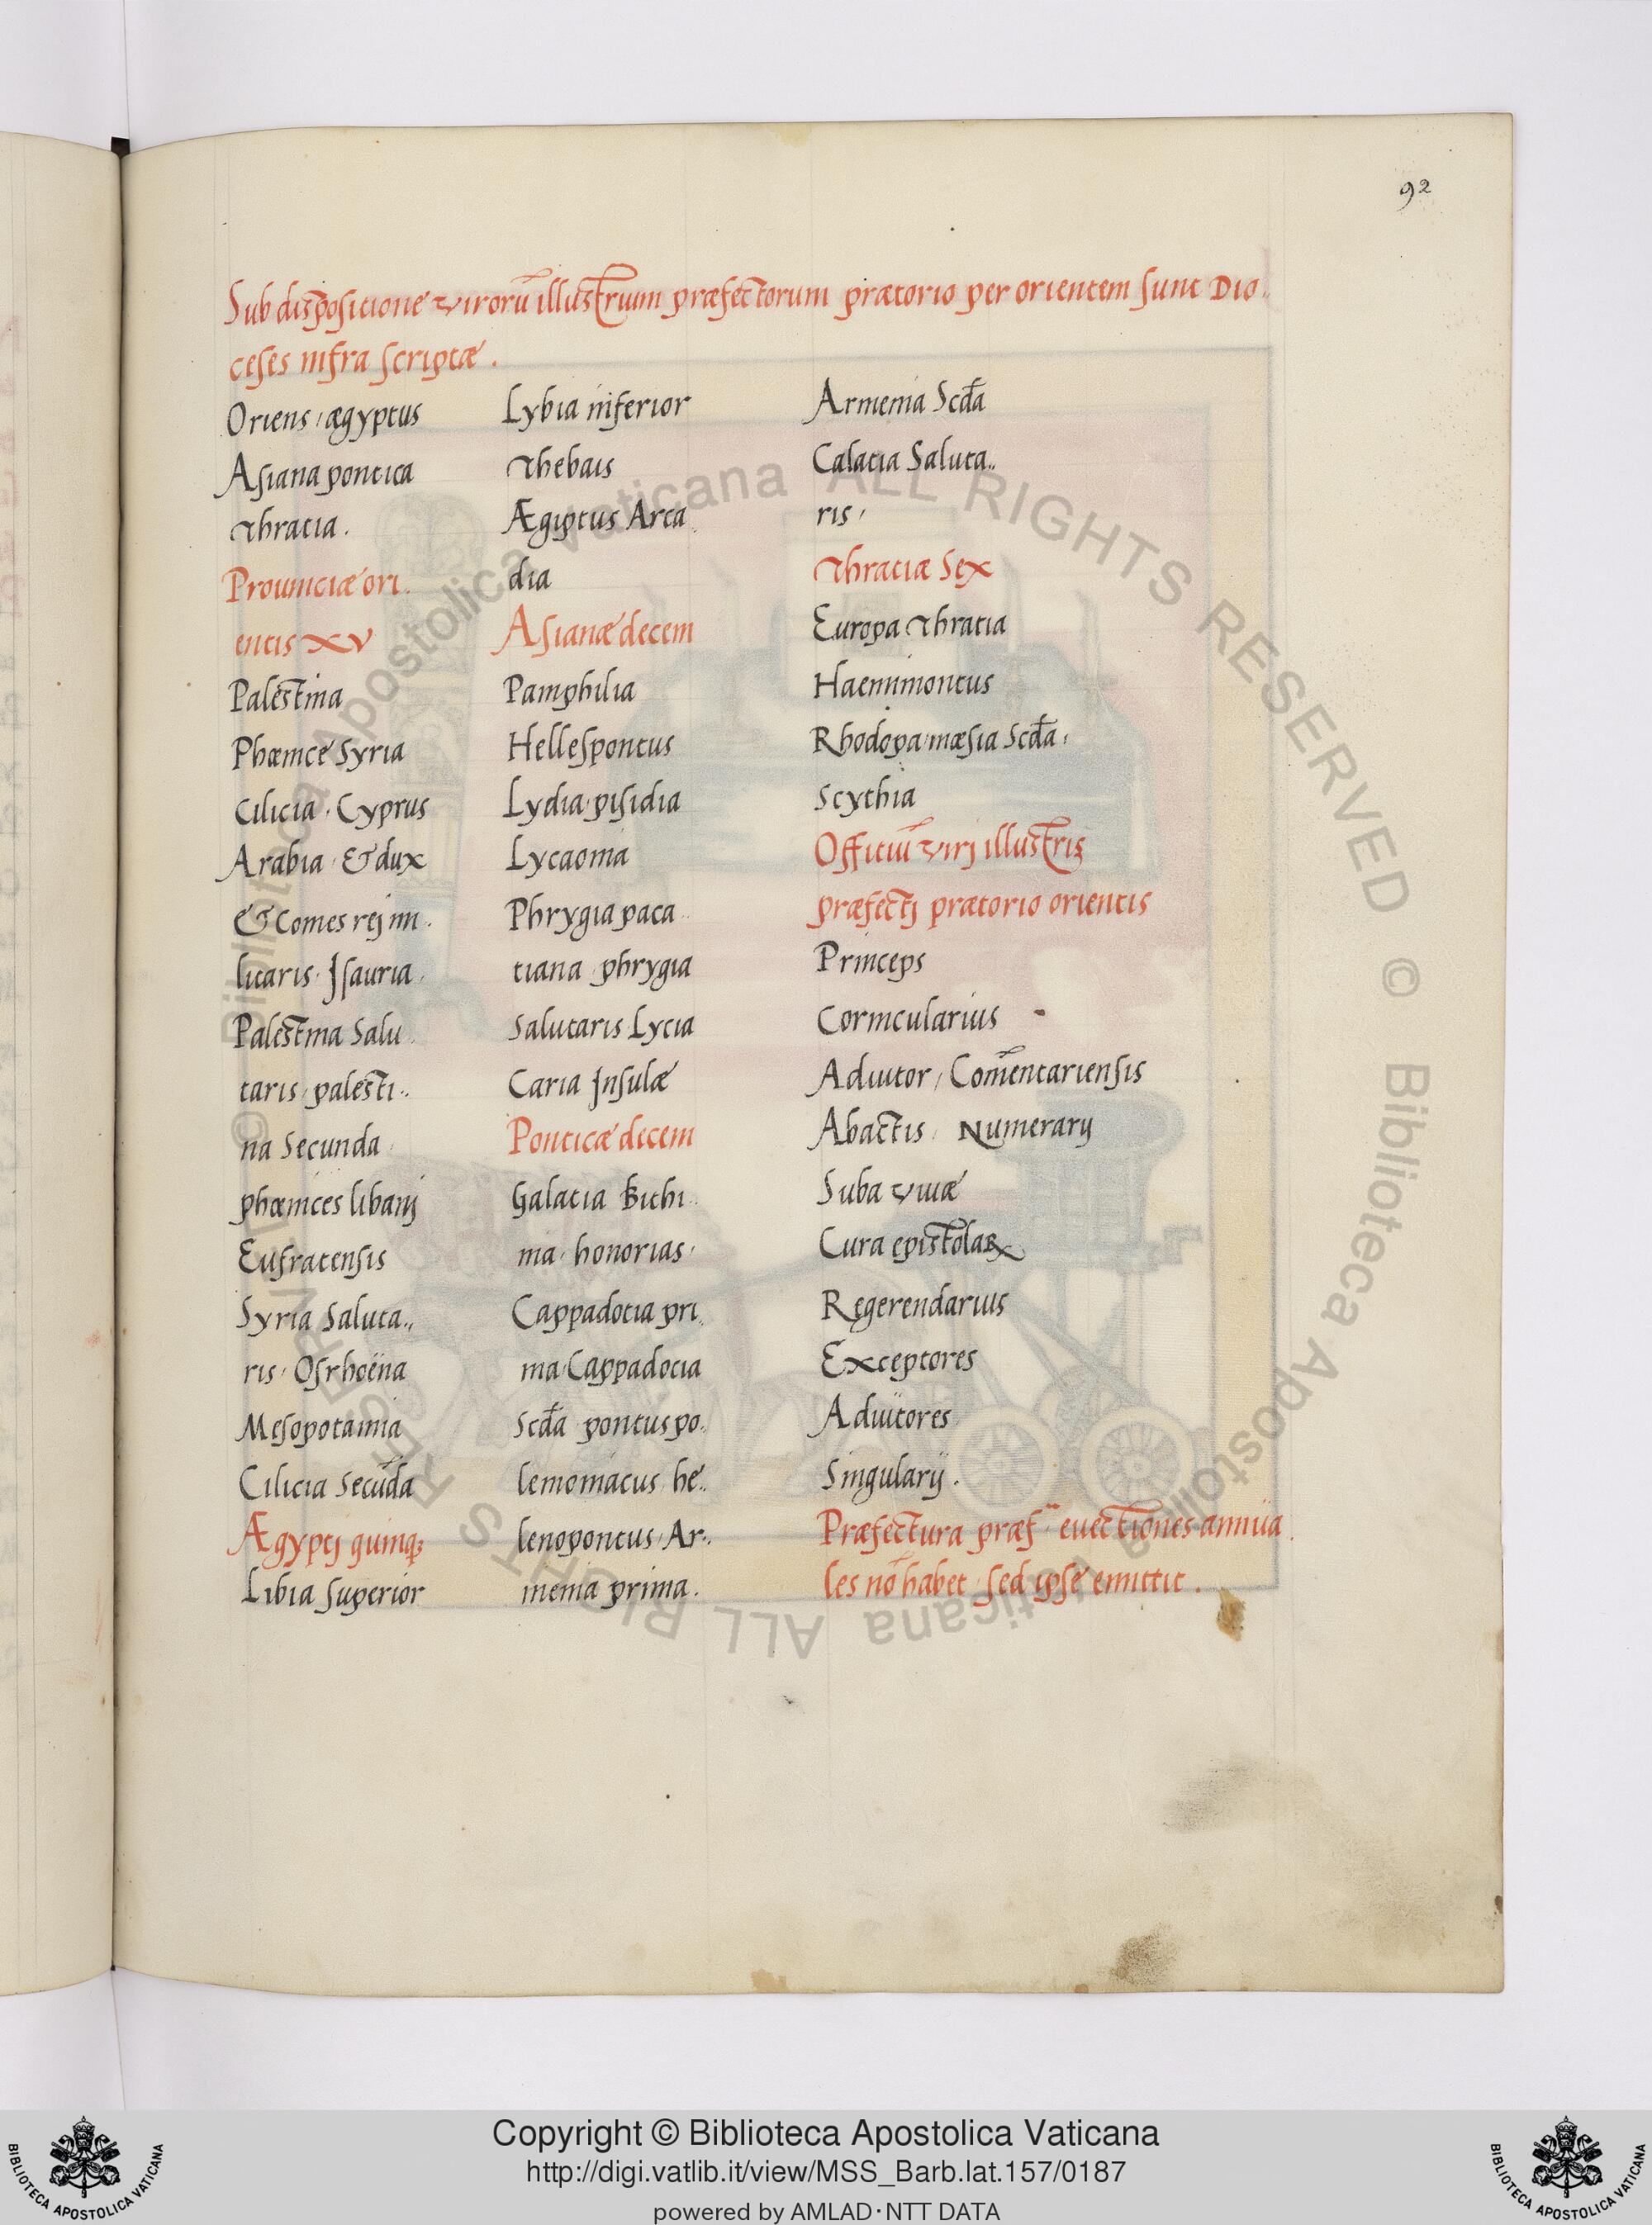 92
Sub dispositione virorū illustrium præfectorum prætorio per orientem sunt Dio..
ceses infra scriptæ.
Oriens, ægyptus
Asiana pontica
Thratia.
Prouinciæ ori.
entis XV
Palestina
Phœnice Syria
Cilicia. Cyprus
Arabia. & dux
& Comes rej mi.
litaris. Jsauria.
Palestina Salu.
taris, palesti..
na Secunda.
phœnices libanj
Eufratensis
Syria Saluta..
ris, Osrhoëna
Mesopotamia
Cilicia Secūda
Ægyptj quinq;
Libia Superior
Lybia inferior
Thebais
Ægiptus Arca.
dia
Asianæ decem
Pamphilia
Hellespontus
Lydia, pisidia
Lycaonia
Phrygia paca..
tiana, phrygia
Salutaris Lycia
Caria Jnsulæ
Ponticæ decem
Galatia Bithi..
nia, honorias,
Cappadotia pri.
ma, Cappadocia
Scd̄a pontus po.
lemoniacus he..
lenopontus, Ar..
menia prima.
Armenia Scd̄a
Calatia Saluta..
ris,
Thratiæ Sex
Europa Thratia
Haemimontus
Rhodopa, mæsia Scd̄a,
Scythia
Offitiū virj illustris
præfectj prætorio orientis
Princeps
Cornicularius
Adiutor, Comētariensis
Abactis, Numerarij
Suba viuæ
Cura epistolaꝝ
Regerendarius
Exceptores
Adiutores
Singularij.
Præfectura præf. euectiones annua.
les nō habet, sed ipse emittit.
© Biblioteca Apostolica Vaticana ALL RIGHTS RESERVED © Biblioteca Apostolica Vaticana ALL RIGHTS RESERVED
Copyright © Biblioteca Apostolica Vaticana
http://digi.vatlib.it/view/MSS_Barb.lat.157/0187
powered by AMLAD·NTT DATA
BIBLIOTECA APOSTOLICA VATICANA
BIBLIOTECA APOSTOLICA VATICANA